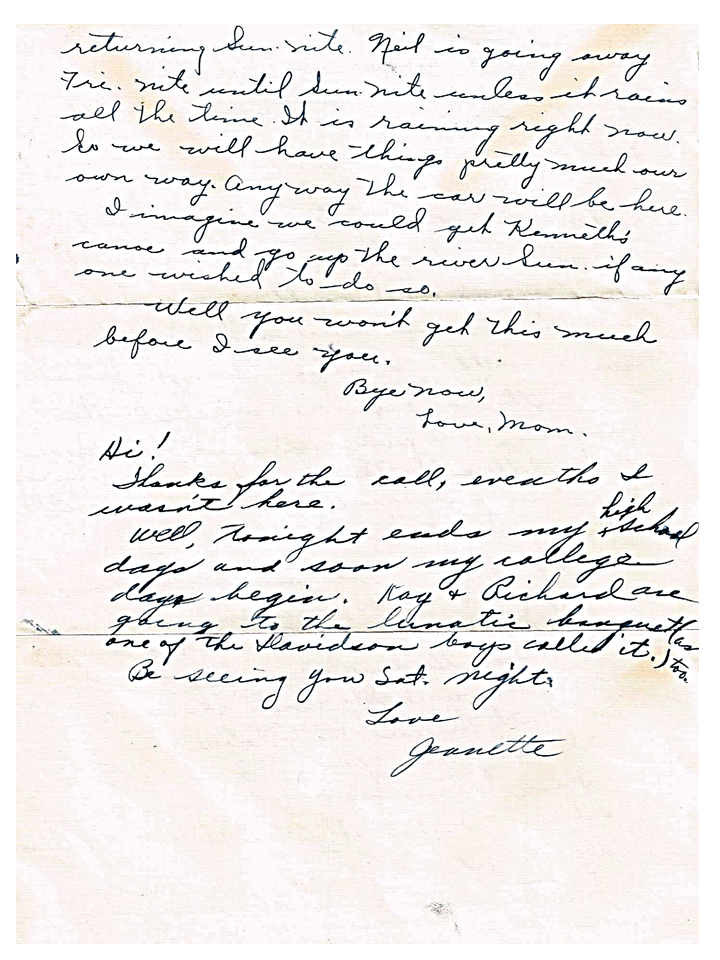 returning Sun. nite. Neil is going away
Fri. nite until Sun. nite unless it rains
all the time. It is raining right now.
So we will have things pretty much our
own way. Anyway the car will be here.
I imagine we could get Kenneth's
canoe and go up the river Sun. if any
one wished to do so.
Well you won't get this much
before I see you.
Bye now,
Love, Mom.
Hi!
Thanks for the call, eventho I
wasn't here.
Well, tonight ends my high school
days and soon my college
days begin. Kay + Richard are
going to the lunatic banquet (as
one of the Davidson boys called it.) too.
Be seeing you Sat. night.
Love
Jeanette